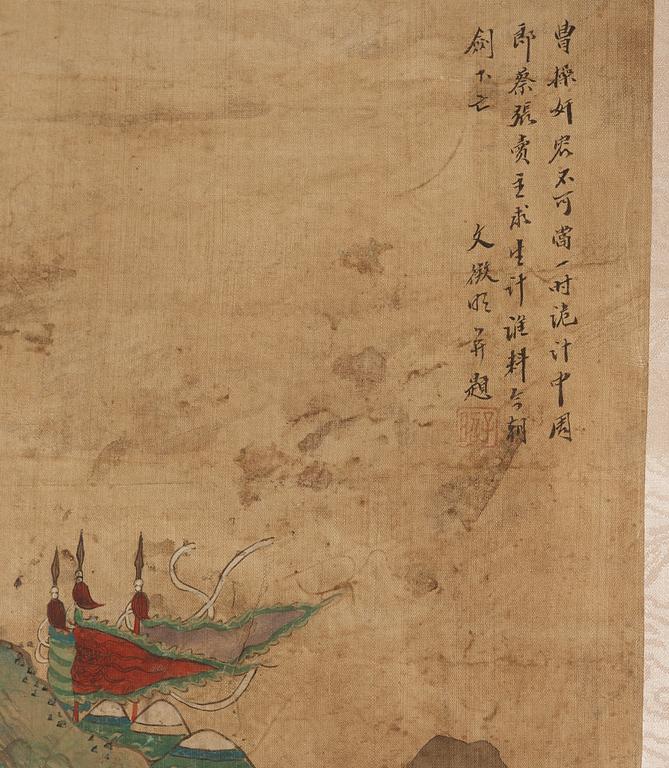 曹操奸宄不可當一时诡计中周
郎蔡張賣主求生计誰料今朝
劍下亡
文徵明并題